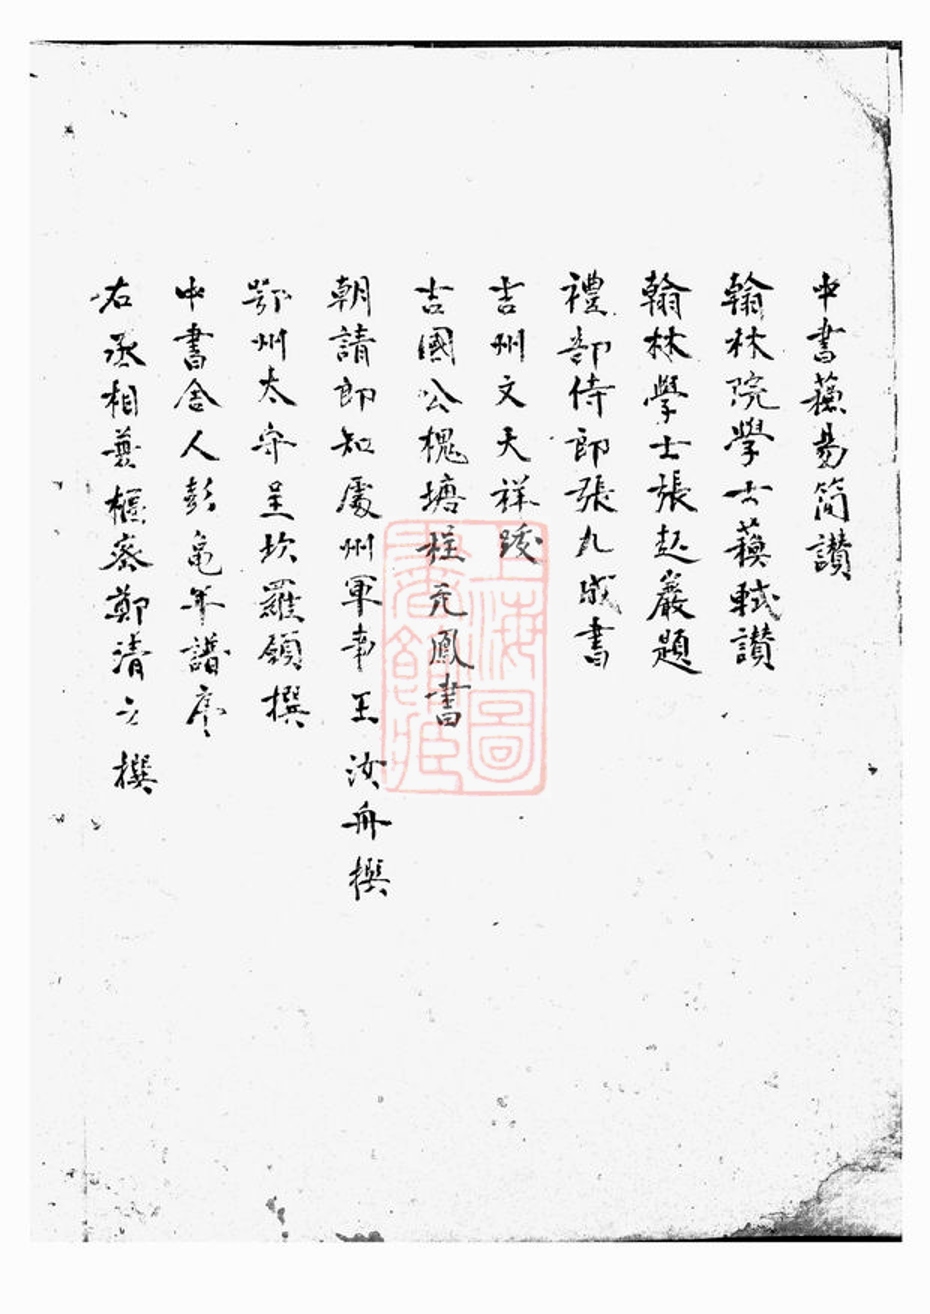 中書蘓易简讃
翰林院學士蘓軾讃
翰林學士張起巖題
禮部侍郎張九成書
吉州文天祥跋
吉國公槐塘程元鳳書
朝請郎知處州軍事王汝舟撰
鄂州太守呈坎羅願撰
中書舍人彭亀年譜序
右丞相兼樞密鄭清之撰
上海圖書館藏